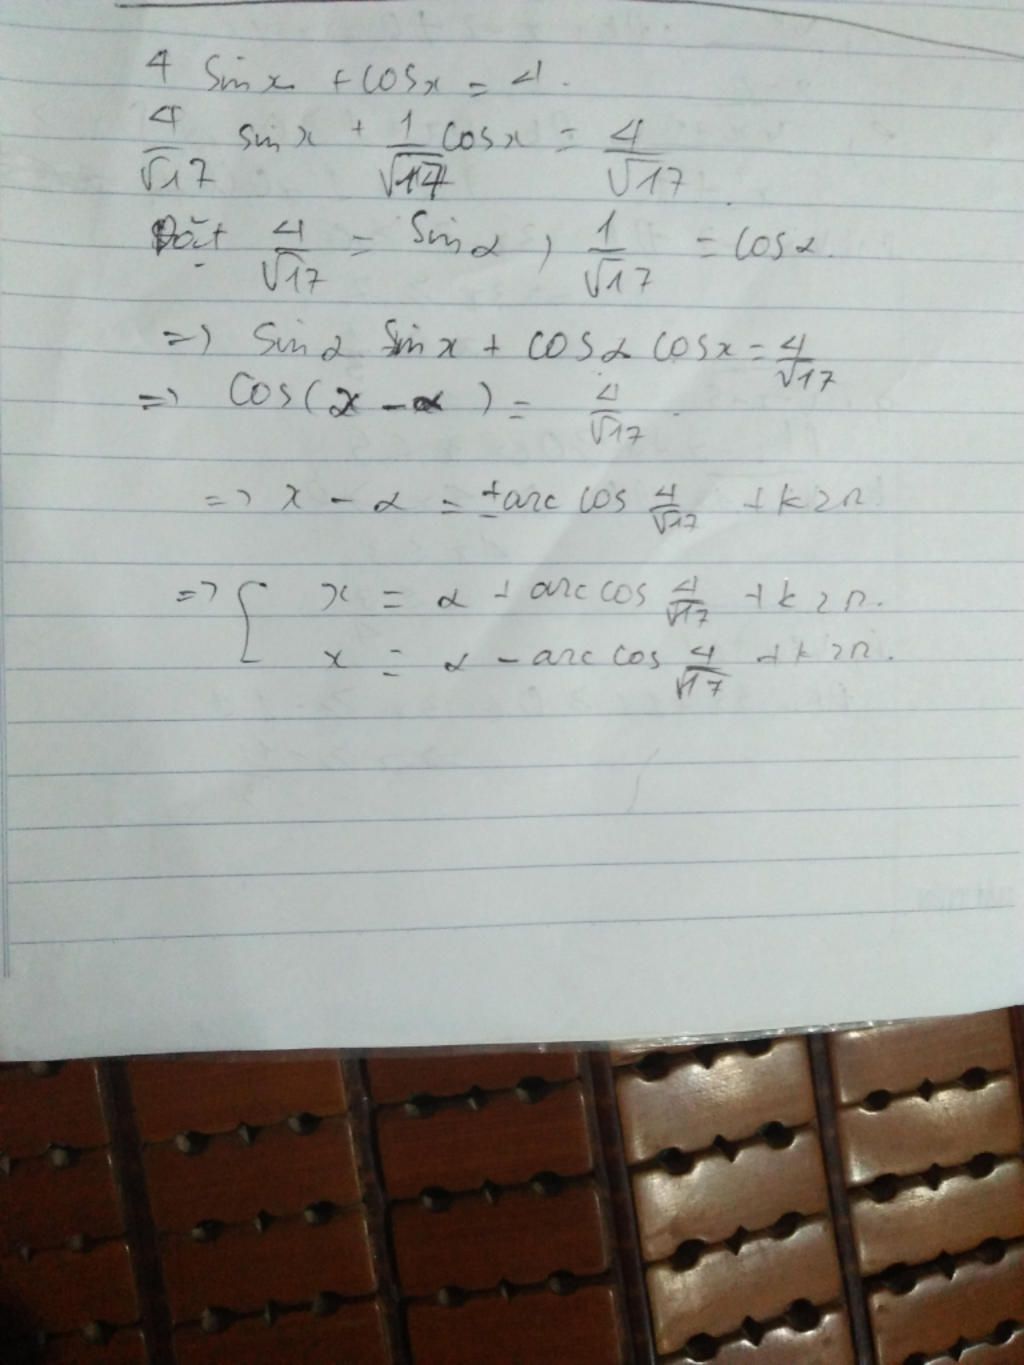 4 sin x + cos x = 4.
4/√17 sin x + 1/√17 cos x = 4/√17
Đặt 4/√17 = sin α, 1/√17 = cos α.
=> sin α sin x + cos α cos x = 4/√17
=> cos(x - α) = 4/√17.
=> x - α = ± arc cos 4/√17 + k2π.
=> [ x = α + arc cos 4/√17 + k2π.
x = α - arc cos 4/√17 + k2π.